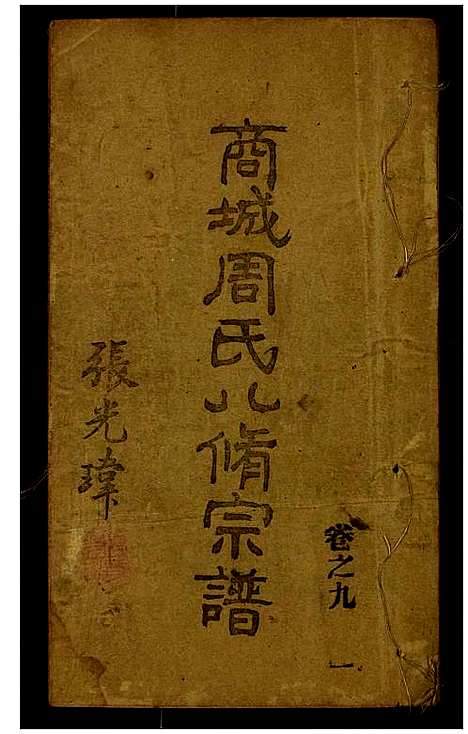 卷之九 一
商城周氏八脩宗譜
張光瑋